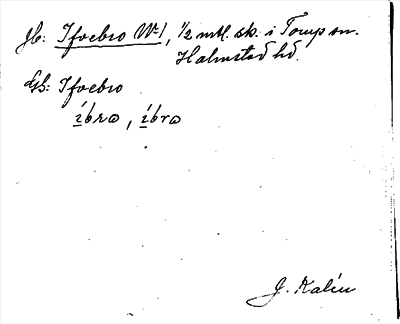 Jb: Ifvebro No 1, 1/2 mtl. sk. i Tönnersjö sn.
Halmstad hd.
Gb: Ifvebro
íbrɷ, íbrɷ
J. Kalén